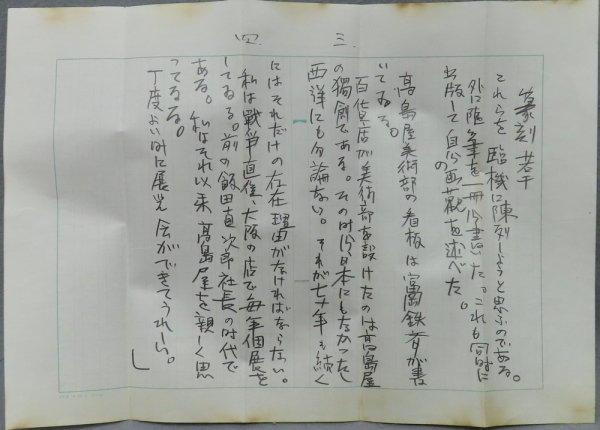 篆刻 若干
これらを臨機に陳列しようと思ふのである。
外に随筆を一冊分書いた。これも同時に
出版して自分の画観を述べた。
三、
高島屋美術部の看板は富岡鉄斎が書
いてゐる。
百貨店が美術部を設けたのは高島屋
の獨創である。その時分日本にもなかったし
西洋にも勿論ない。それが七十年も続く
にはそれだけの存在理由がなければならない。
四、
私は戦争直後、大阪の店で毎年個展を
してゐる。前の飯田直次郎社長の時代で
ある。私はそれ以来高島屋を親しく思
ってゐる。
丁度よい時に展覧会ができてうれしい。